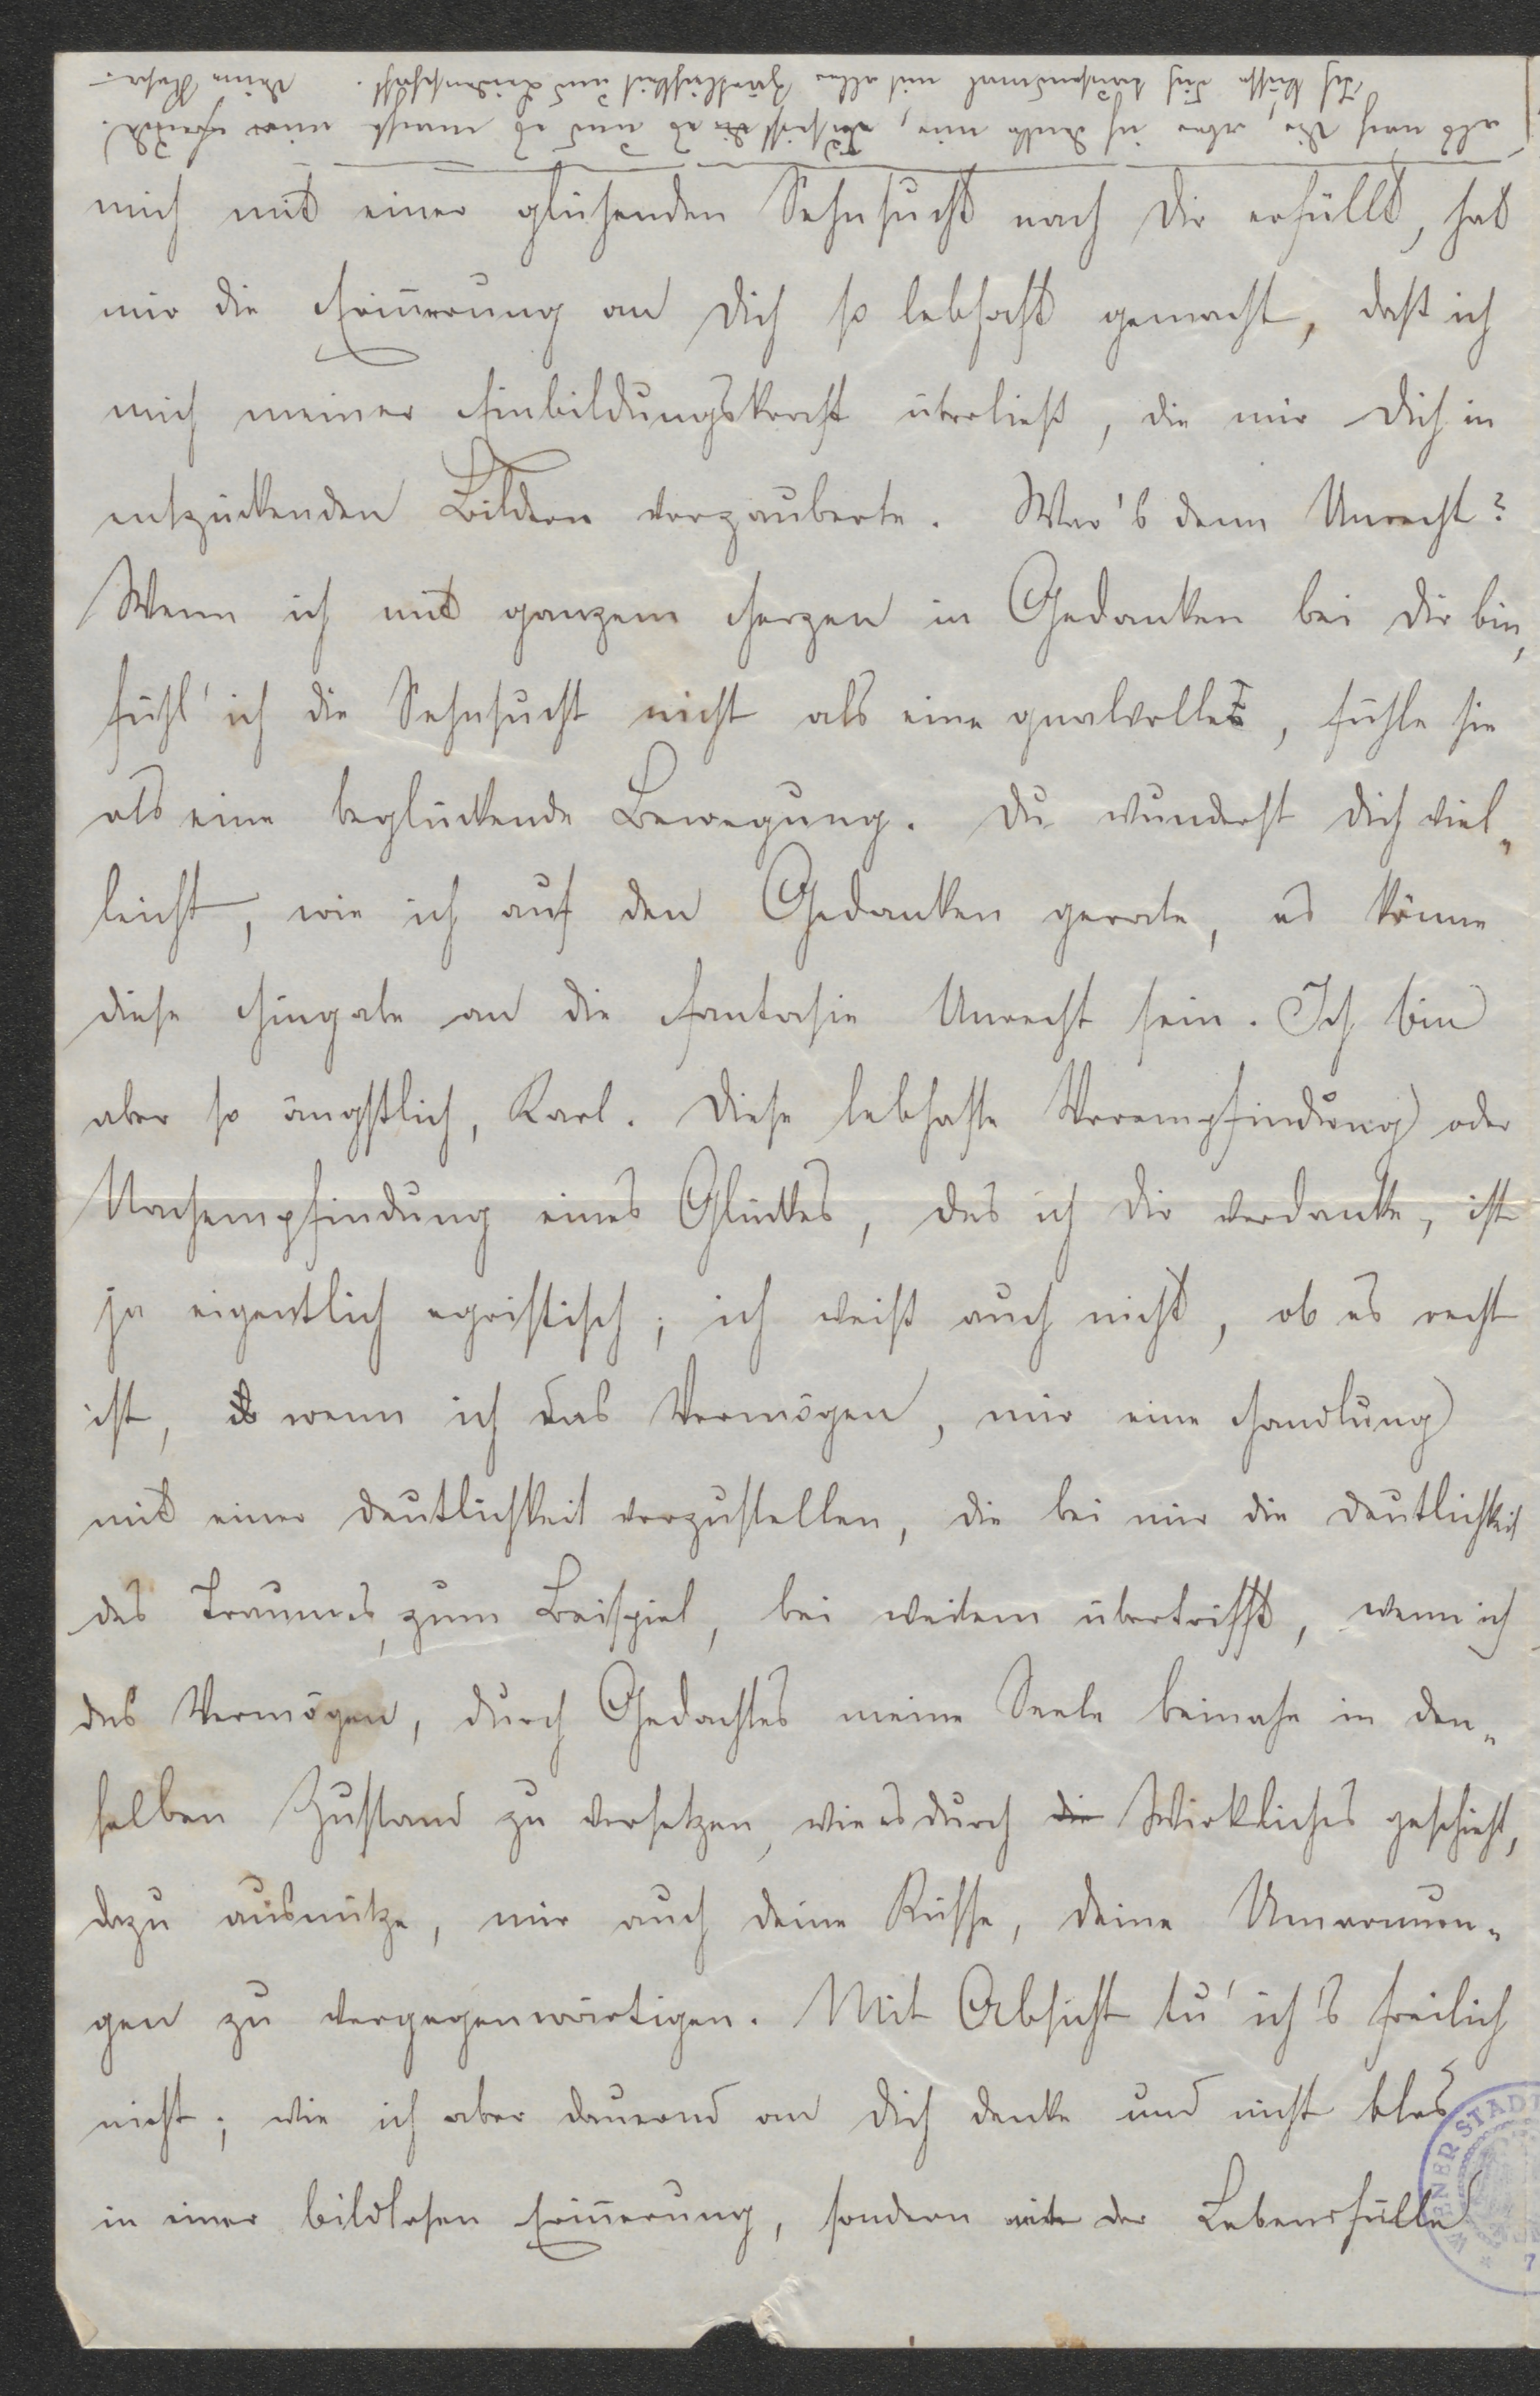 als nach Dir, aber ich denke mir, Du hast es und es macht mir Freude.
Ich küsse Dich tausendmal mit aller Zärtlichkeit und Leidenschaft. Deine Rosa.
mich mit einer glühenden Sehnsucht nach Dir erfüllt, hat
mir die Erin̄erung an Dich so lebhaft gemacht, daß ich
mich meiner Einbildungskraft überließ, die mir Dich in
entzückenden Bildern vorzauberte. War's denn Unrecht?
Wenn ich mit ganzem Herzen in Gedanken bei Dir bin,
fühl' ich die Sehnsucht nicht als eine qualvolle, fühle sie
als eine beglückende Bewegung. Du wunderst Dich viel„
leicht, wie ich auf den Gedanken gerate, es könne
diese Hingabe an die Fantasie Unrecht sein. Ich bin
aber so ängstlich, Karl. Diese lebhafte Vorempfindung oder
Nachempfindung eines Glückes, das ich Dir verdanke, ist
ja eigentlich egoistisch; ich weiß auch nicht, ob es recht
ist, wenn ich das Vermögen, mir eine Handlung
mit einer Deutlichkeit vorzustellen, die bei mir die Deutlichkeit
des Traumes, zum Beispiel, bei weitem übertrifft, wenn ich
das Vermögen, durch Gedachtes meine Seele beinahe in den„
selben Zustand zu versetzen, wie es durch die Wirkliches geschieht,
dazu ausnütze, mir auch deine Küsse, deine Umarmun„
gen zu vergegenwärtigen. Mit Absicht tu' ich's freilich
nicht; wie ich aber dauernd an Dich denke und nicht blos
in einer bildlosen Erin̄erung, sondern mit der Lebensfülle
WIENER STADT
7